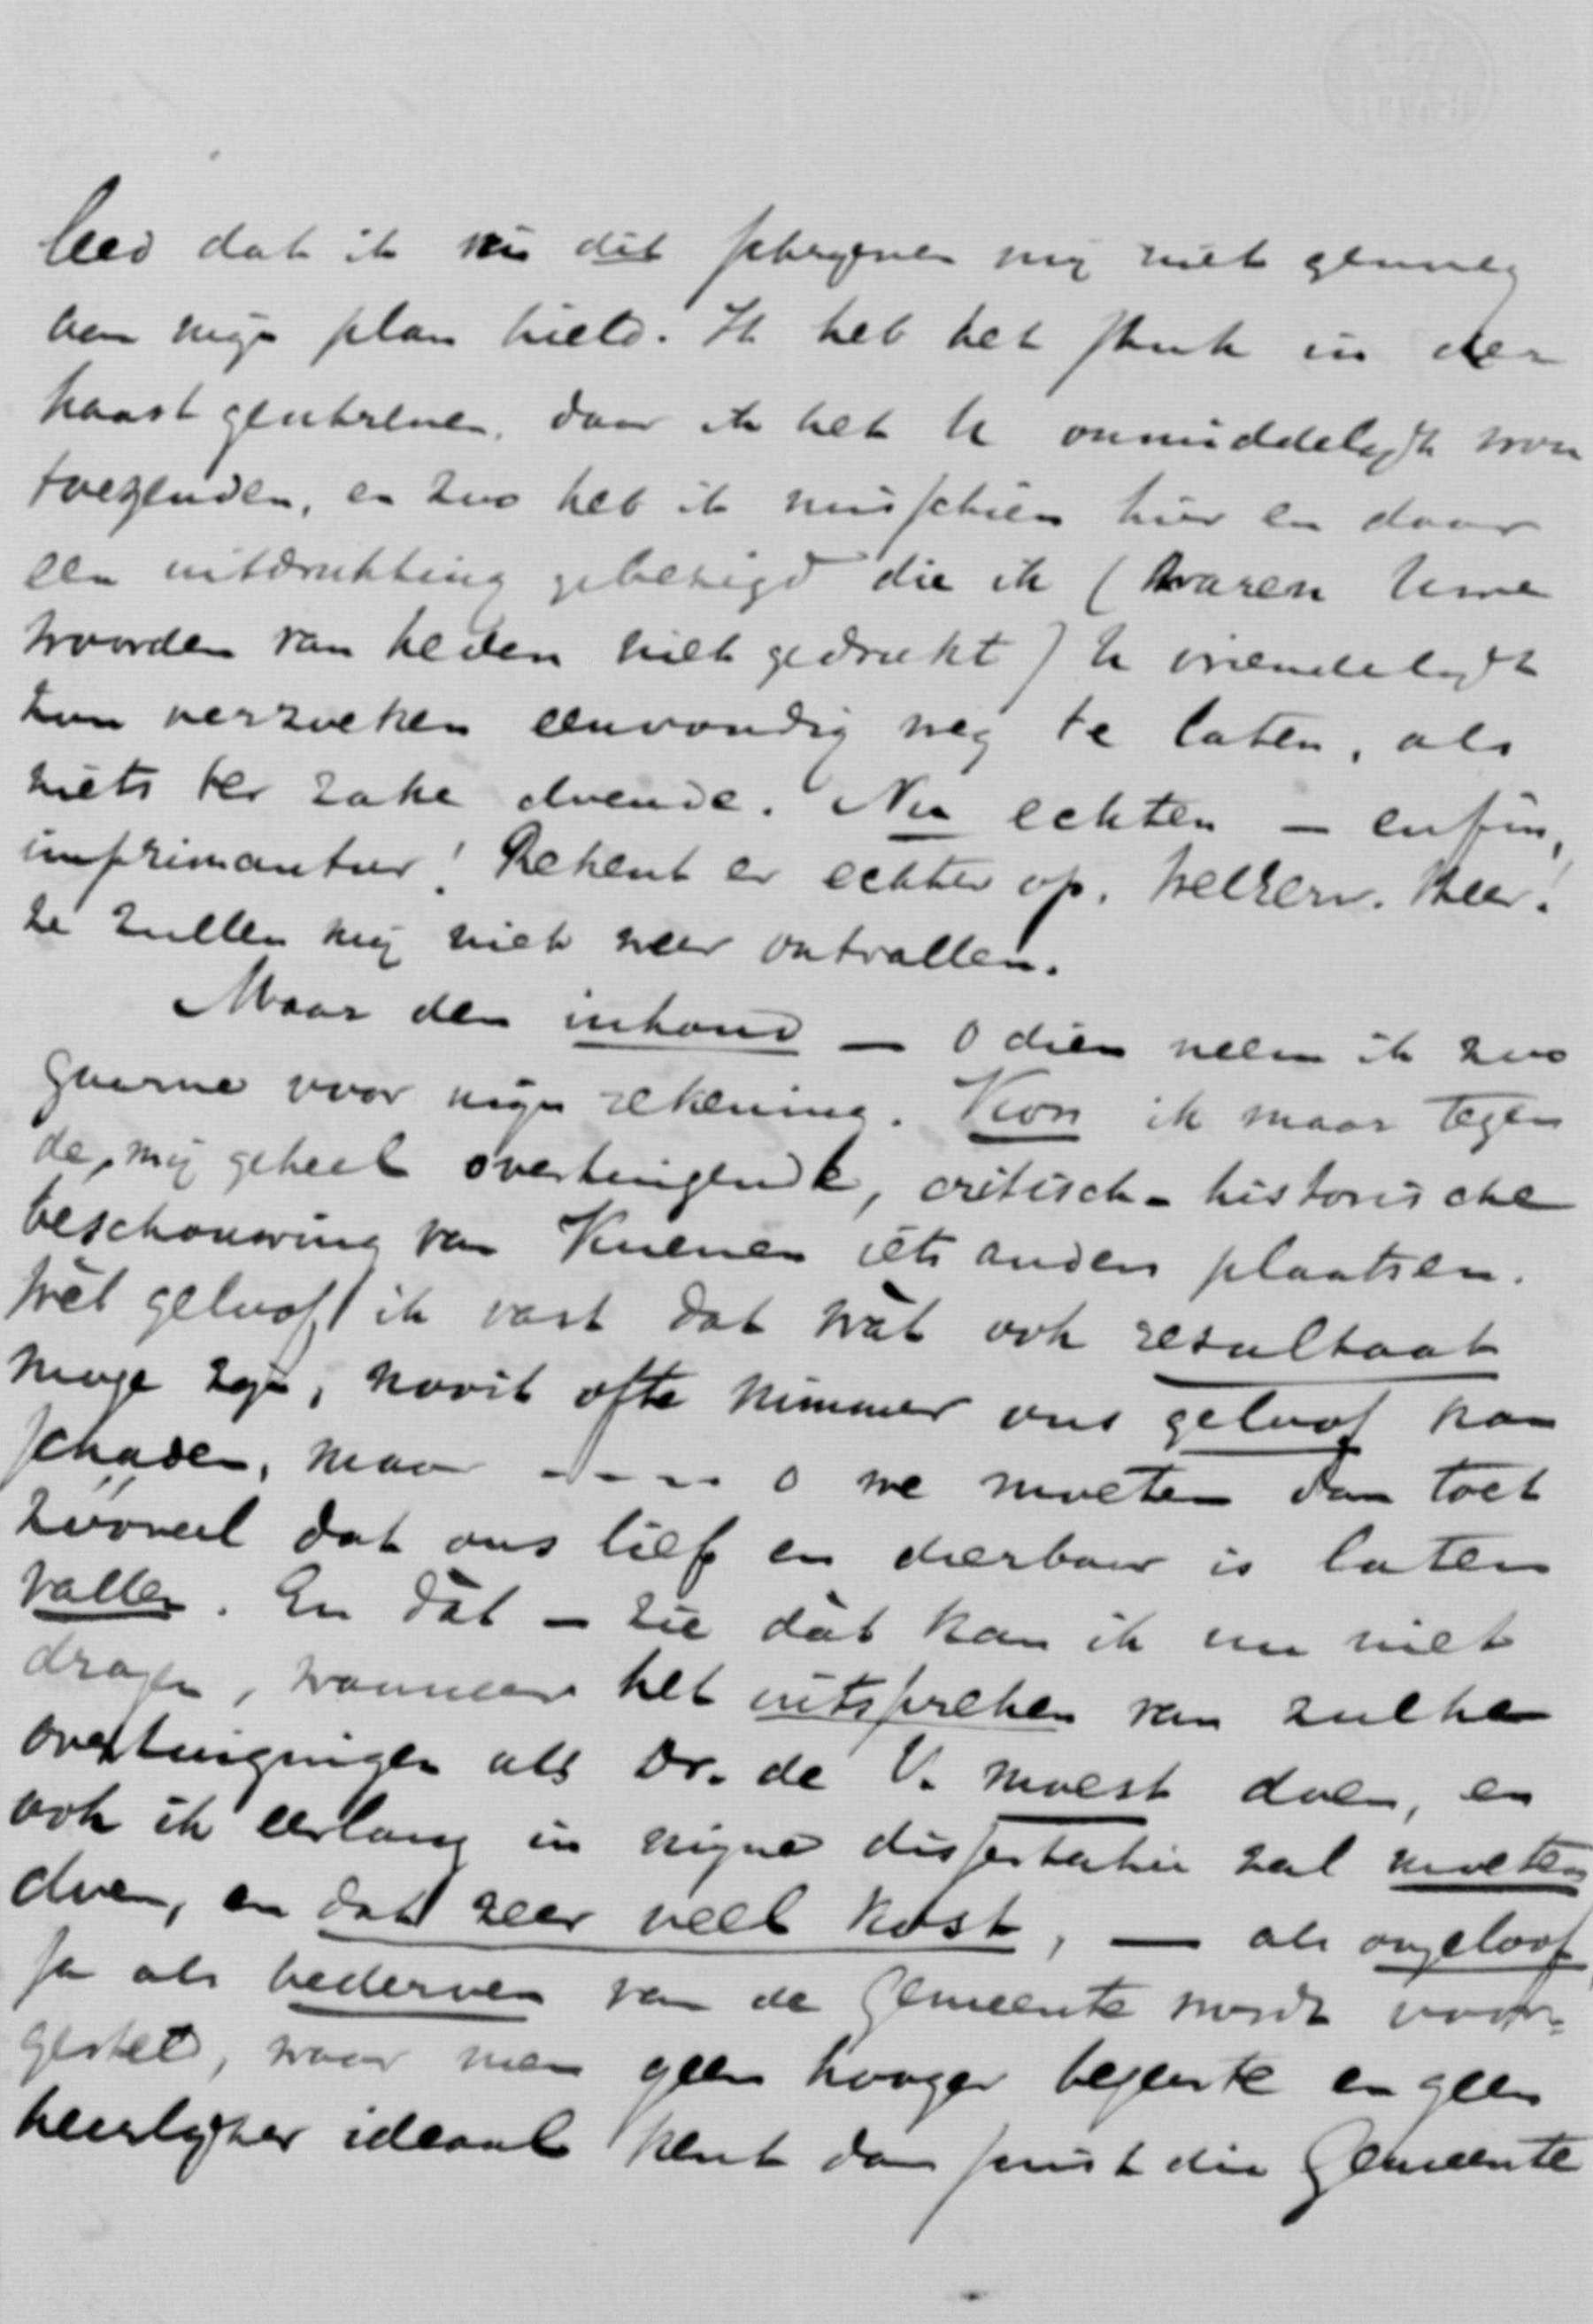 leed dat ik in dit schrijven mij niet genoeg
aan mijn plan hield. Ik heb het stuk in der
haast geschreven, daar ik het U onmiddelijk wou
toezenden, en zoo heb ik misschien hier en daar
een uitdrukking gebezigd die ik (waren Uwe
woorden van heden niet gedrukt) U vriendelijk
zou verzoeken eenvoudig weg te laten, als
niets ter zake doende. Nu echter — enfin,
imprimantur! Rekent er echter op, WelEerw. Heer!
ze zullen mij niet weer ontvallen.
Maar den inhoud — o dien neem ik zoo
gaarne voor mijn rekening. Kon ik maar tegen
de, mij geheel overtuigende, critisch-historische
beschouwing van Kuenen iets anders plaatsen.
Wèl geloof ik vast dat wàt ook resultaat
moge zijn, nooit ofte nimmer ons geloof kan
schaden, maar ---- o we moeten dan toch
zóóveel dat ons lief en dierbaar is laten
vallen. En dàt — zie dàt kan ik nu niet
dragen, wanneer het uitspreken van zulke
overtuigingen als Dr. de V. moest doen, en
ook ik eerlang in mijne dissertatie zal moeten
doen, en dat zeer veel kost, — als ongeloof
ja als bederven van de Gemeente wordt voor-
gesteld, waar men geen hooger begeerte en geen
heerlijker ideaal kent dan juist die Gemeente